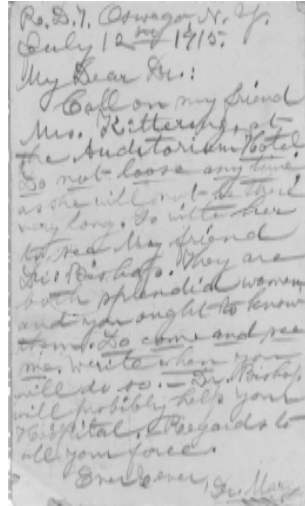 R.D.7. Oswego N. Y.
July 12 1915.
My Dear Dr.:
Call on my friend
Mrs. Kittering, at
the Auditorium Hotel
Do not loose any time
as she will not be there
very long. Go with her
to see My friend
Dr. Bishop. They are
both splendid women
and you ought to know
them. Do come and see
me. Write when you
will do so. — Dr. Bishop
will probibly help your
Hospital. Regards to
all your force.
Ever Ever,
Dr. Mary